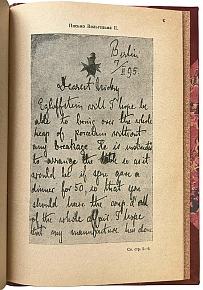 Письмо Вильгельма II.
Berlin
7/II 95.
Dearest Nicky
Egloffstein will I hope be
able to bring over the whole
heap of porcelain without
any breakage. He is instructed
to arrange the table so as it
would be if you gave a
dinner for 50, so that you
should have the coup d'œil
of the whole affair. I hope
that my manufacture has done
См. стр. 5—6.